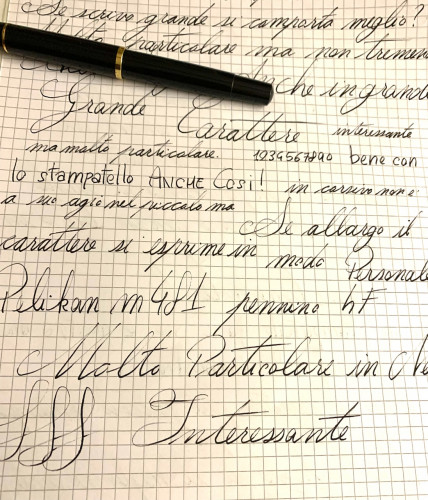 Se scrivo grande si comporta meglio?
Molto particolare ma non tremen
Anche in grande
Grande Carattere interessante
ma molto particolare. 1234567890 bene con
lo stampatello ANCHE COSì! in corsivo non è
a suo agio nel piccolo ma
Se allargo il
carattere si esprime in modo Personale
Pelikan m 481 pennino hF
Molto Particolare in
fff Interessante